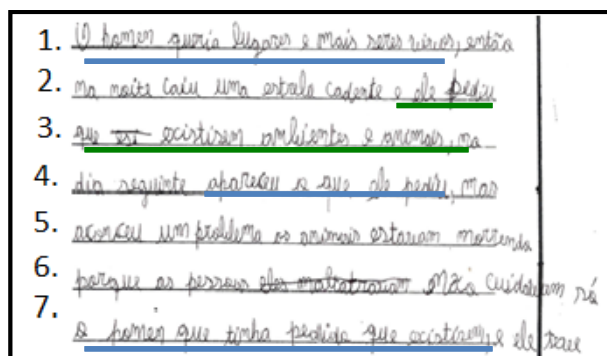 1. O homen queria lugares e mais seres vivos, então
2. na noite caiu uma estrela cadente e ele pediu
3. que esi existisem ambientes e animais, na
4. dia seguinte apareceu o que ele pediu, mas
5. aconceu um problema os animais estavam morrendo
6. porque as pessoas eles maltratavam não cuidavam só
7. o homen que tinha pedido que existisem, e ele teve